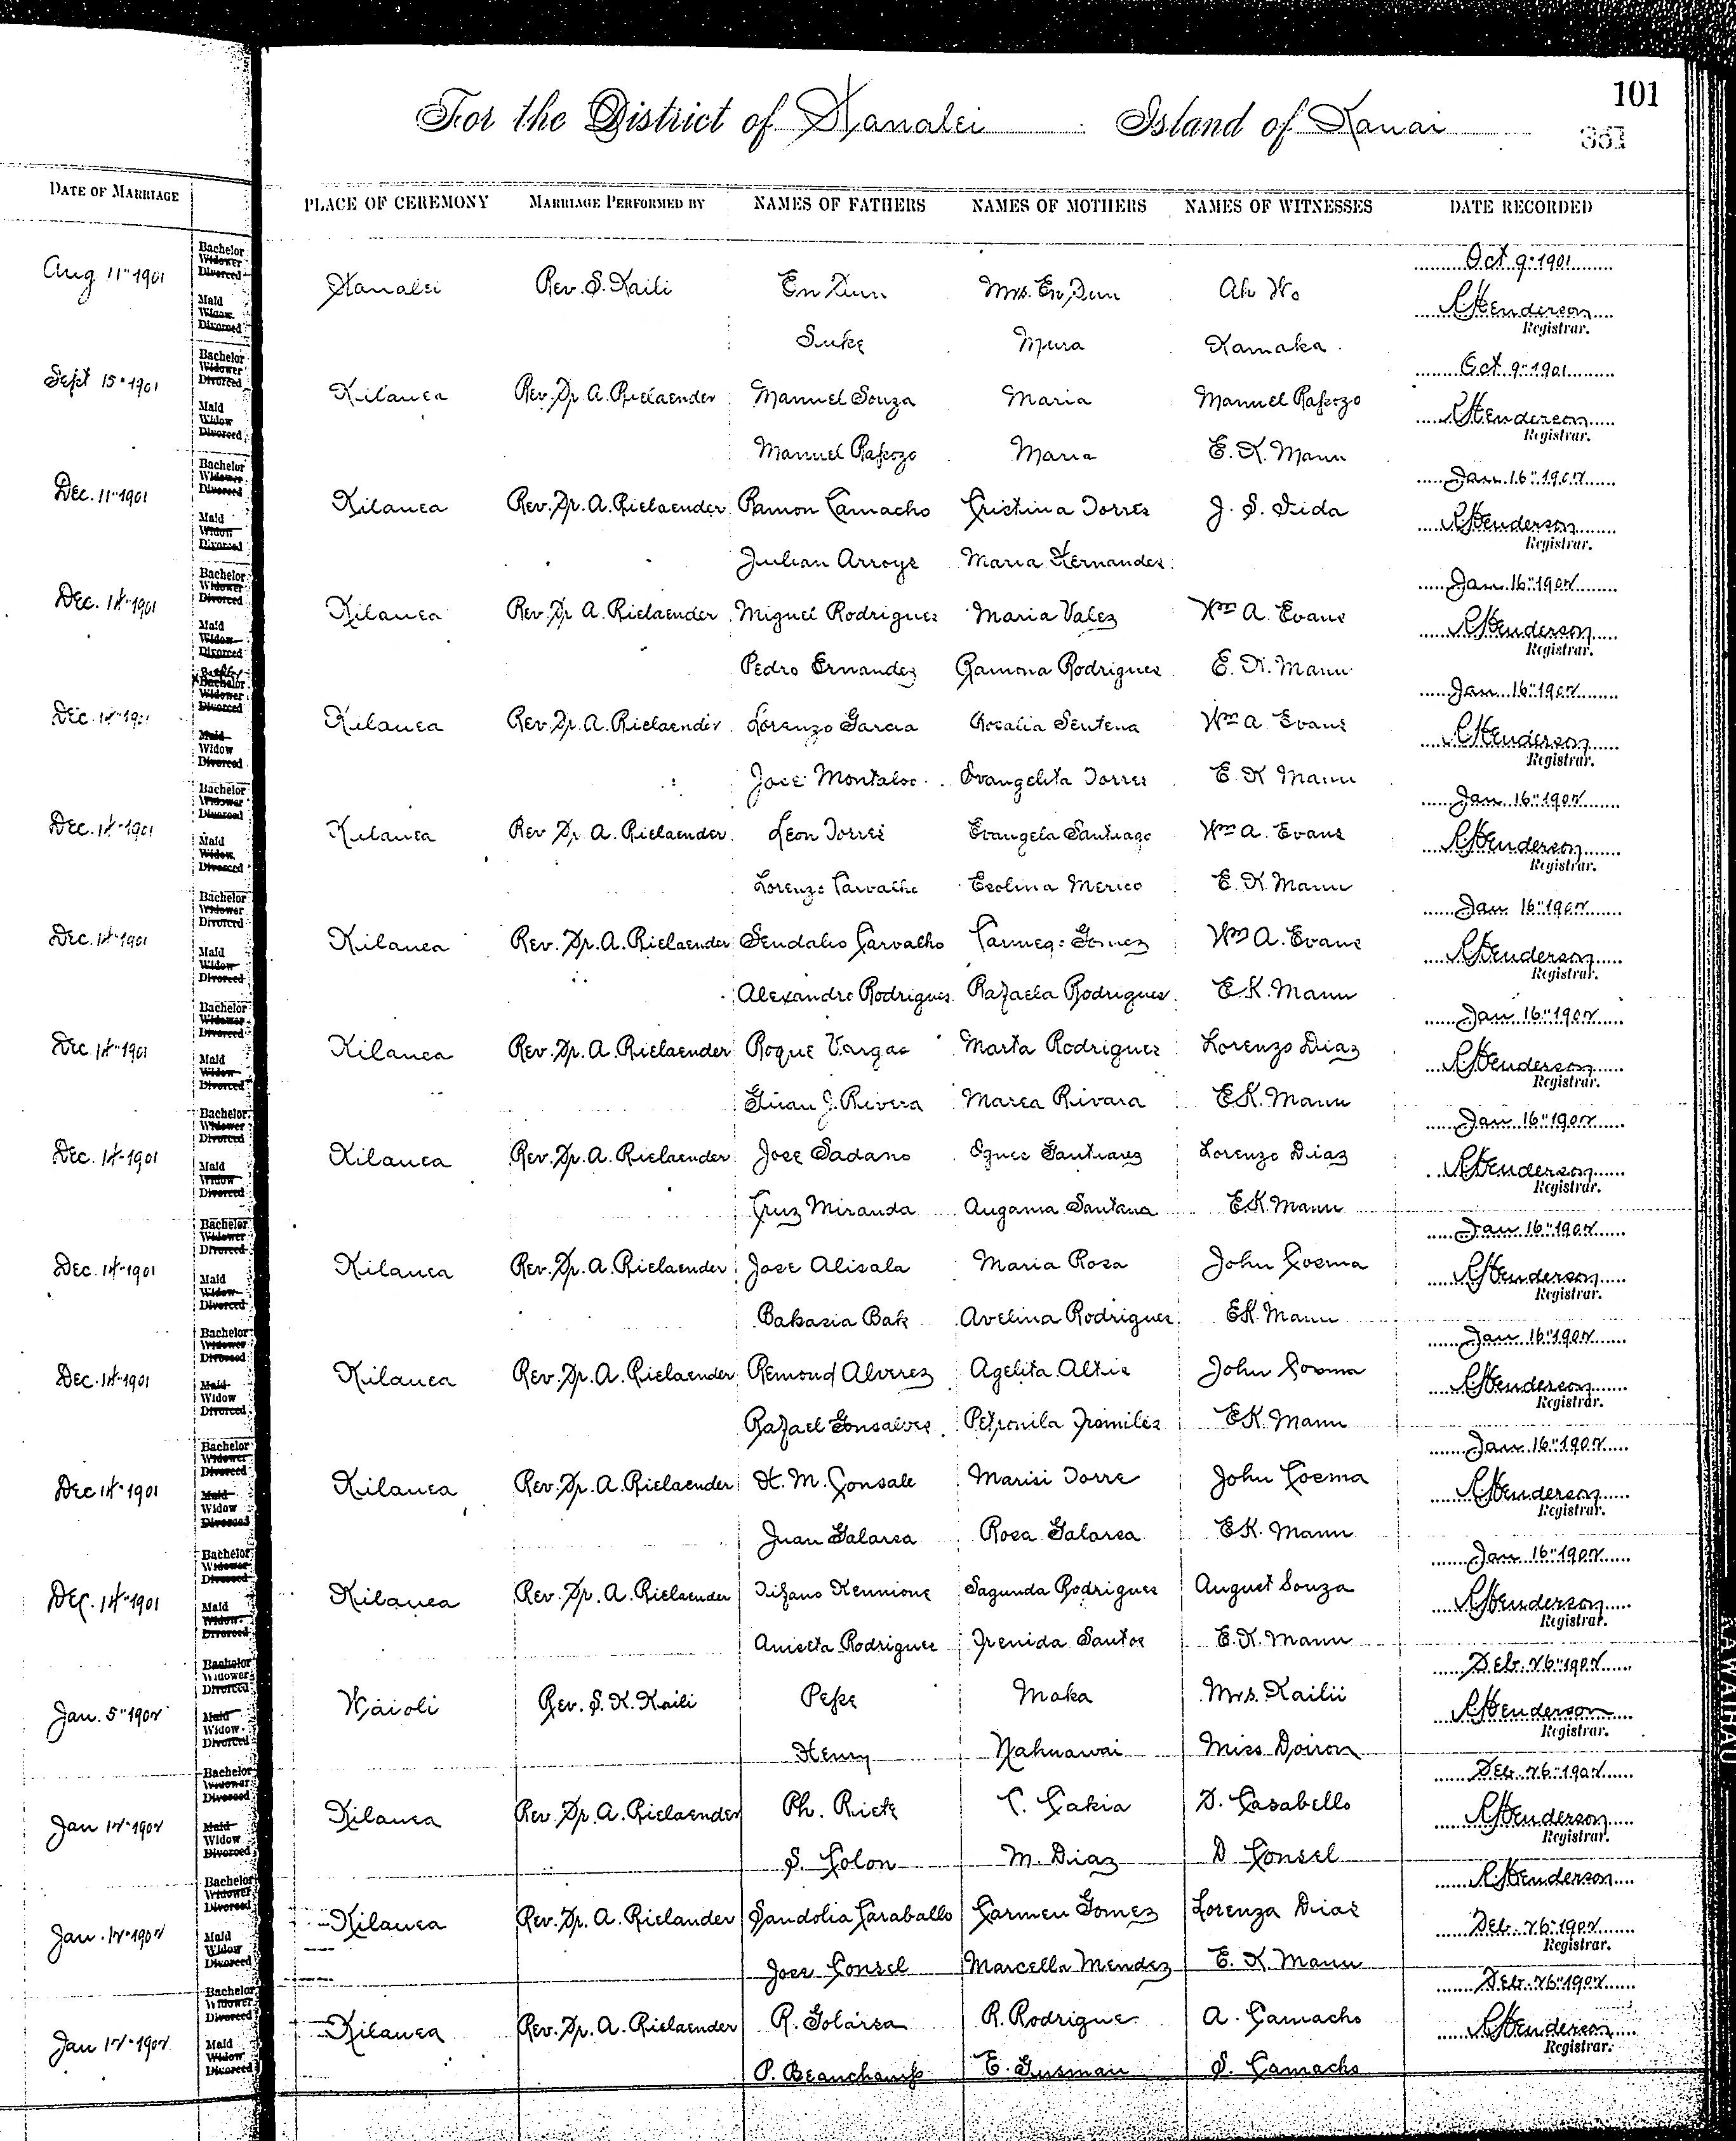 101
For the District of Hanalei Island of Kauai
361
DATE OF MARRIAGE PLACE OF CEREMONY MARRIAGE PERFORMED BY NAMES OF FATHERS NAMES OF MOTHERS NAMES OF WITNESSES DATE RECORDED
Bachelor Widower Divorced Oct 9" 1901
Aug 11" 1901 Hanalei Rev. S. Kaili En Kun Mrs. En Kun Ah Ho RHenderson
Maid Widow Divorced Registrar.
Suke Mura Kamaka
Bachelor Widower Divorced Oct 9" 1901
Sept 15" 1901 Kilauea Rev. Dr. A. Rielaender Manuel Souza Maria Manuel Rapozo RHenderson
Maid Widow Divorced Registrar.
Manuel Rapozo Maria E. K. Mann
Bachelor Widower Divorced Jan 16" 1902
Dec. 11" 1901 Kilauea Rev. Dr. A. Rielaender Ramon Camacho Cristina Torres J. S. RHenderson
Maid Widow Divorced Registrar.
Julian Arroye Maria Hernandes
Bachelor Widower Divorced Jan 16" 1902
Dec. 14" 1901 Kilauea Rev. Dr A. Rielaender Miguel Rodrigues Maria Valez Wm A. Evans RHenderson
Maid Widow Divorced Registrar.
Pedro Ernandez Ramona Rodrigues E. K. Mann
Bachelor Widower Divorced Jan 16" 1902
Dec. 14" 1901 Kilauea Rev. Dr. A. Rielaender Lorenzo Garcia Rosalia Sentena Wm A. Evans RHenderson
Maid Widow Divorced Registrar.
Jose Montaloo Evangelita Torres E. K Mann
Bachelor Widower Divorced Jan 16" 1902
Dec. 14" 1901 Kilauea Rev Dr. A. Rielaender Leon Torres Evangela Santiago Wm A. Evans RHenderson
Maid Widow Divorced Registrar.
Lorenzo Carvalho Esolina Merico E. K. Mann
Bachelor Widower Divorced Jan 16" 1902
Dec. 14" 1901 Kilauea Rev. Dr. A. Rielaender Sendalio Carvalho Gomez Wm A. Evans RHenderson
Maid Widow Divorced Registrar.
Alexandro Rodrigues Rafaela Rodrigues E. K. Mann
Bachelor Widower Divorced Jan 16" 1902
Dec. 14" 1901 Kilauea Rev. Dr. A. Rielaender Roque Vargas Marta Rodrigues Lorenzo Diaz RHenderson
Maid Widow Divorced Registrar.
J. Rivera Marea Rivara E K. Mann
Bachelor Widower Divorced Jan 16" 1902
Dec. 14" 1901 Kilauea Rev. Dr. A. Rielaender Jose Sadano Santuarez Lorenzo Diaz RHenderson
Maid Widow Divorced Registrar.
Cruz Miranda Augania Santana E K. Mann
Bachelor Widower Divorced Jan 16" 1902
Dec. 14" 1901 Kilauea Rev. Dr. A. Rielaender Jose Alisala Maria Rosa John Cosma RHenderson
Maid Widow Divorced Registrar.
Bakasia Bak Avelina Rodrigues E K. Mann
Bachelor Widower Divorced Jan 16" 1902
Dec. 14" 1901 Kilauea Rev. Dr. A. Rielaender Remond Alverez Agelita Altie John Cosma RHenderson
Maid Widow Divorced Registrar.
Rafael Gonsalves Petronila E K. Mann
Bachelor Widower Divorced Jan 16" 1902
Dec 14" 1901 Kilauea Rev. Dr. A. Rielaender H. M. Consale Marisi Torre John Cosma RHenderson
Maid Widow Divorced Registrar.
Juan Galarsa Rosa Galarsa E K. Mann
Bachelor Widower Divorced Jan 16" 1902
Dec. 14" 1901 Kilauea Rev. Dr. A. Rielaender Tifano Kennione Sagunda Rodrigues August Souza RHenderson
Maid Widow Divorced Registrar.
Aniseta Rodrigues Frenida Santos E. K. Mann
Bachelor Widower Divorced Feb. 26" 1902
Jan. 5" 1902 Waioli Rev. S. K. Kaili Pepe Moka Mrs. Kailii RHenderson
Maid Widow Divorced Registrar.
Henry Nahuawai Miss Doiron
Bachelor Widower Divorced Feb. 26" 1902
Jan 12" 1902 Kilauea Rev. Dr. A. Rielaender Ph. Riek C. Cakia D. Casabello RHenderson
Maid Widow Divorced Registrar.
S. Colon M. Diaz D Consel
Bachelor Widower Divorced RHenderson
Jan. 12" 1902 Kilauea Rev. Dr. A. Rielander Sandolia Caraballo Carmen Gomez Lorenza Dias Feb. 26" 1902
Maid Widow Divorced Registrar.
Jose Consel Marcella Mendez E. K. Mann
Bachelor Widower Divorced Feb. 26" 1902
Jan 12" 1902 Kilauea Rev. Dr. A. Rielaender R. Golarsa R. Rodrigue A. Camacho RHenderson
Maid Widow Divorced Registrar.
P. Beauchamp E. Gusman S. Camacho
KAWAIHAU